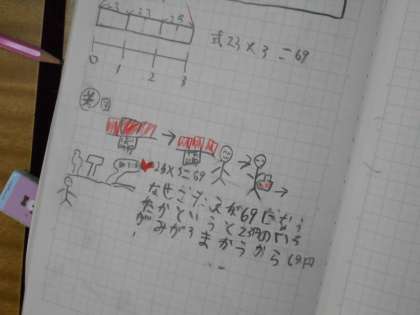 23 23 23
式23×3=69
0 1 2 3
図
23×3=69
なぜこたえが69になっ
たかというと23円のいろ
がみが3まいかうから69円